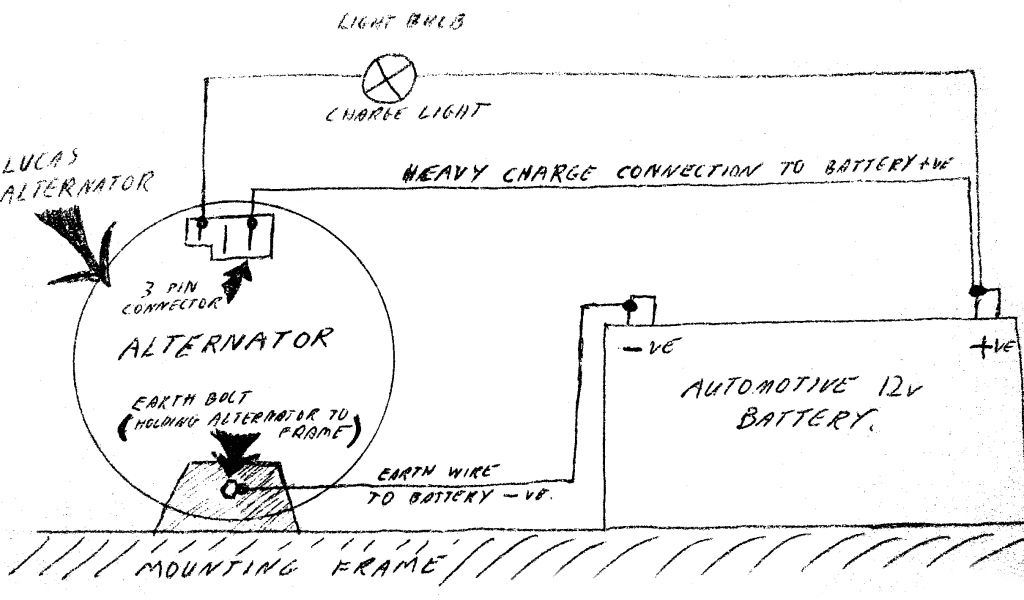 LIGHT BULB
CHARGE LIGHT
LUCAS
ALTERNATOR
HEAVY CHARGE CONNECTION TO BATTERY +VE
3 PIN
CONNECTOR
ALTERNATOR
EARTH BOLT
(HOLDING ALTERNATOR TO
FRAME)
- VE
+VE
AUTOMOTIVE 12v
BATTERY.
EARTH WIRE
TO BATTERY - VE.
MOUNTING FRAME